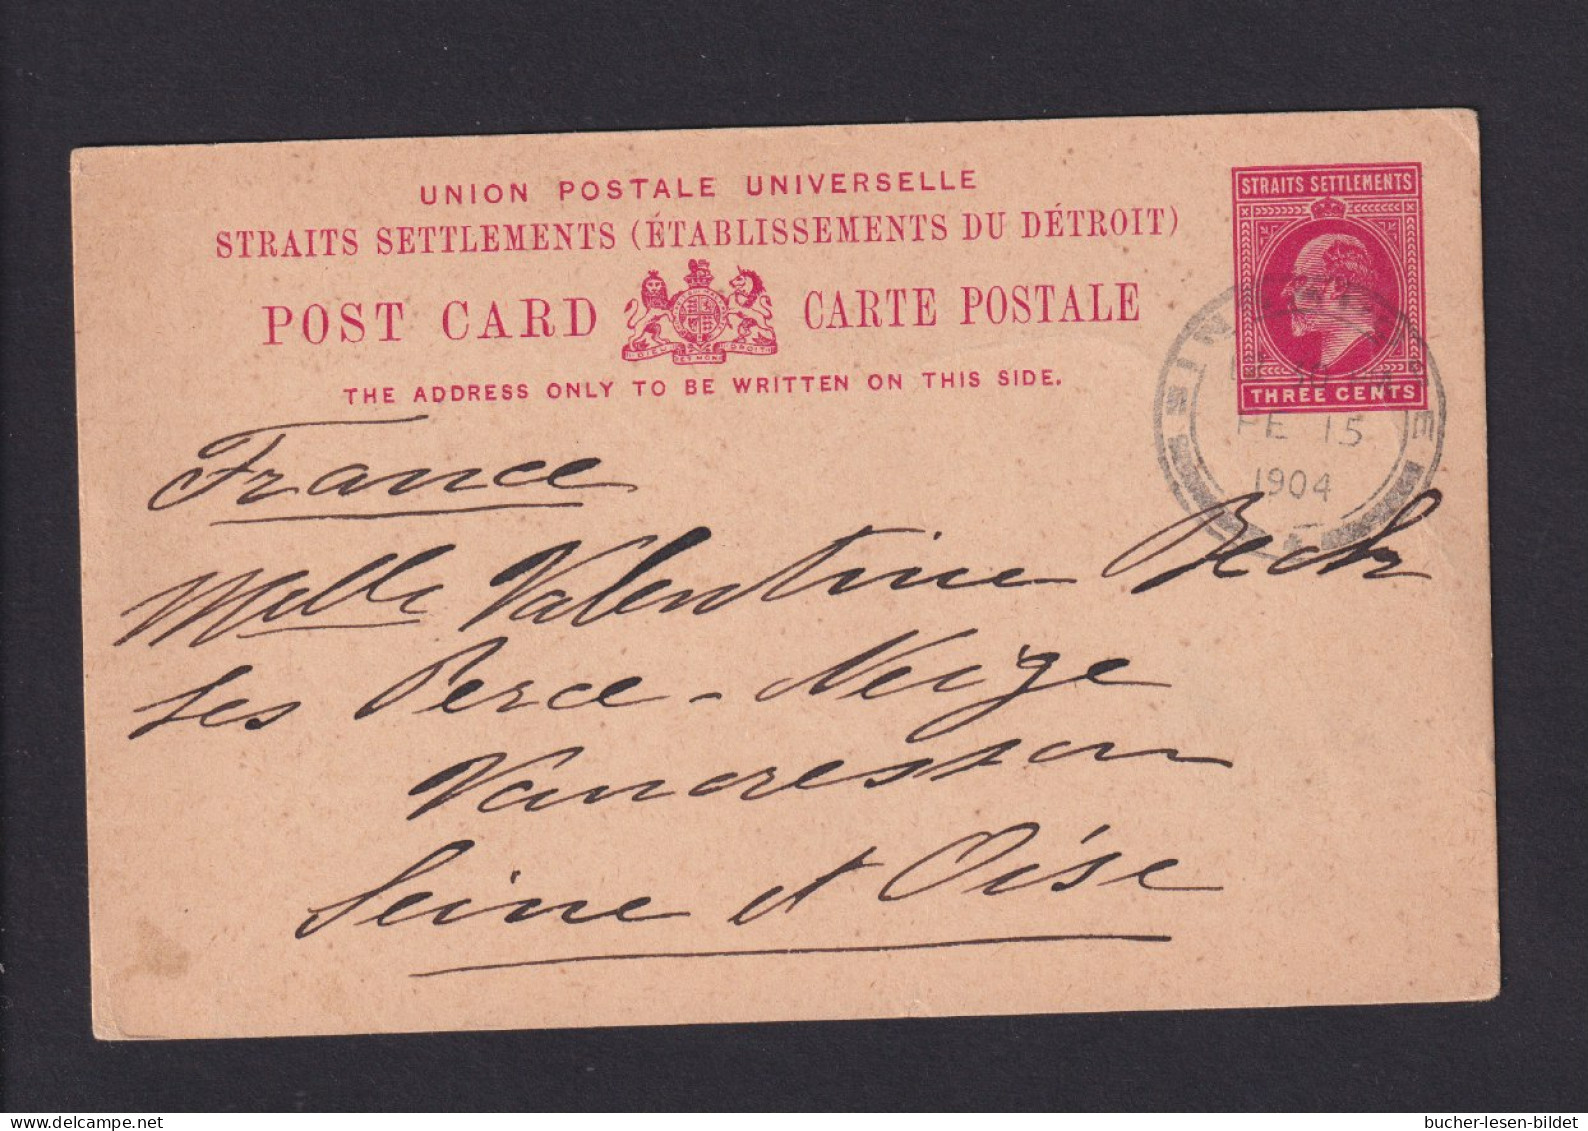 UNION POSTALE UNIVERSELLE
STRAITS SETTLEMENTS (ÉTABLISSEMENTS DU DÉTROIT)
POST CARD CARTE POSTALE
DIEU ET MON DROIT
THE ADDRESS ONLY TO BE WRITTEN ON THIS SIDE.
STRAITS SETTLEMENTS
THREE CENTS
FE 15
1904
France
Melle Valentine
Les Perce-Neige
Vaucresson
Seine et Oise
bucher-lesen-bildet